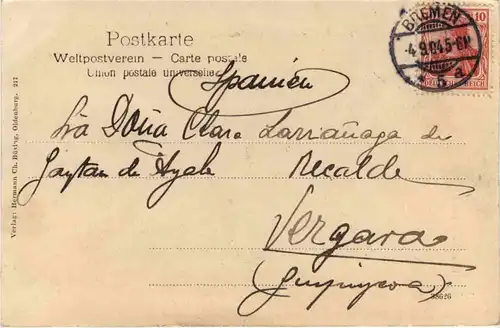 Postkarte
Weltpostverein — Carte postale
Union postale universelle
Spanien
BREMEN
4.9.04.5-6N
5 a
10
DEUTSCHES REICH
Sra Doña Clara Larrañaga de
Gaytan de Ayala Recalde
Vergara
(Guipuzcoa)
Verlag: Hermann Ch. Büsing, Oldenburg. 217